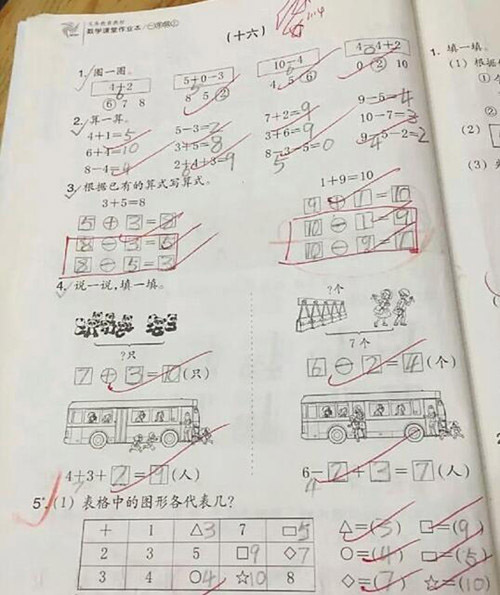 数学课堂作业本
(十六)
1. 圈一圈。
4+2
⑥ 7 8
5+0-3
8 5 ②
10-4
4 5 ⑥
4-4+2
0 ② 10
2. 算一算。
4+1=5 5-3=2 7+2=9 9-5=4
3+5=8 3+6=9 10-7=3
8-4=4 2+4+3=9 8-3-5=0 9-5-2=2
3. 根据已有的算式写算式。
3+5=8 1+9=10
5+3=8 9+1=10
8-3=5 10-1=9
8-5=3 10-9=1
4. 说一说，填一填。
?个
?只 7个
7+3=10(只) 6-2=4(个)
4+3+2=9(人) 6-2+3=7(人)
5. (1) 表格中的图形各代表几?
+ 1 △3 7 □5
2 3 5 □9 ◇7
3 4 ○4 ☆10 8
△=(3) □=(9)
○=(4) □=(5)
◇=(7) ☆=(10)
1. 填一填。
(1) 根据
①
②
(2)
(3)